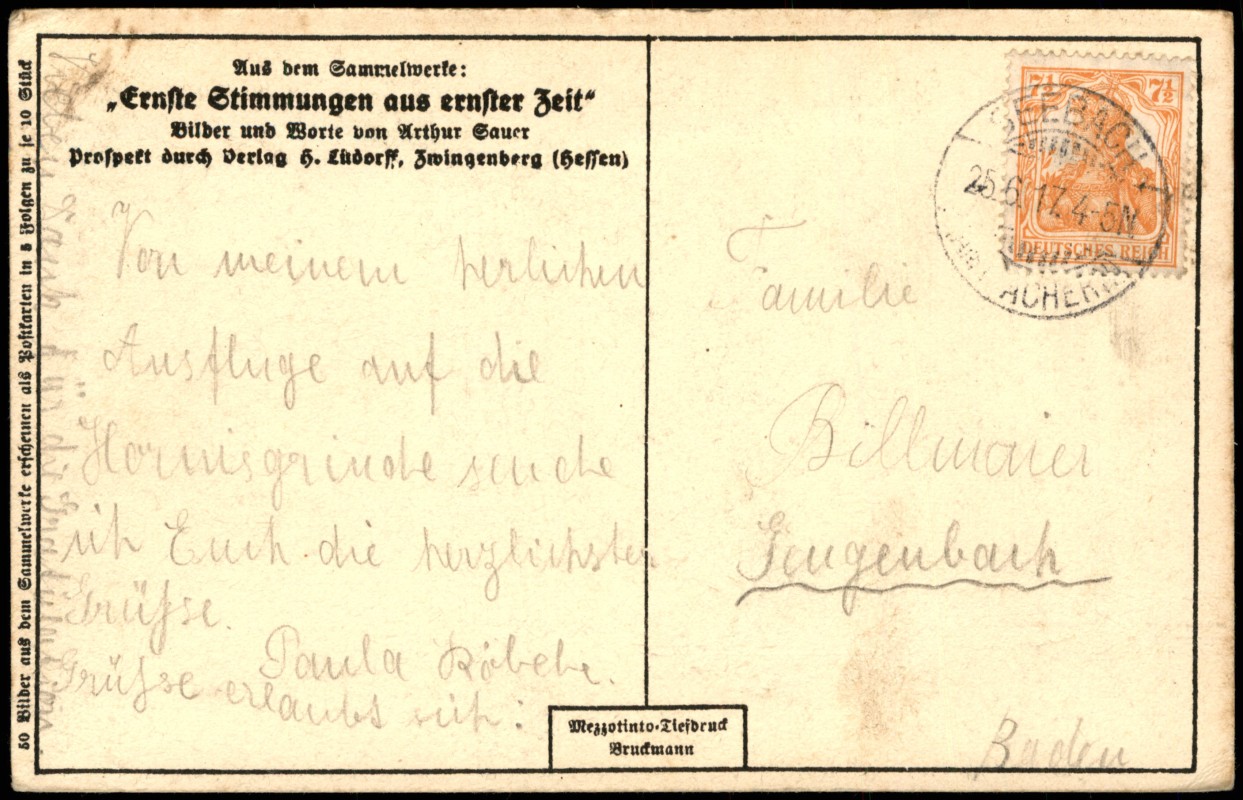 Aus dem Sammelwerke:
„Ernste Stimmungen aus ernster Zeit“
Bilder und Worte von Arthur Sauer
Prospekt durch Verlag H. Lüdorff, Zwingenberg (Hessen)
50 Bilder aus dem Sammelwerke erscheinen als Postkarten in 5 Folgen zu je 10 Stück
Von meinem herlichen
Ausfluge auf die
Hornisgrinde sende
ich Euch die herzlichsten
Grüsse.
Paula
Grüsse erlaubt sich:
Dank für die
7½ 7½
DEUTSCHES REICH
SEEBACH
25.6.17. 4-5N
ACHERN
Familie
Billmaier
Gengenbach
Baden
Mezzotinto-Tiefdruck
Bruckmann